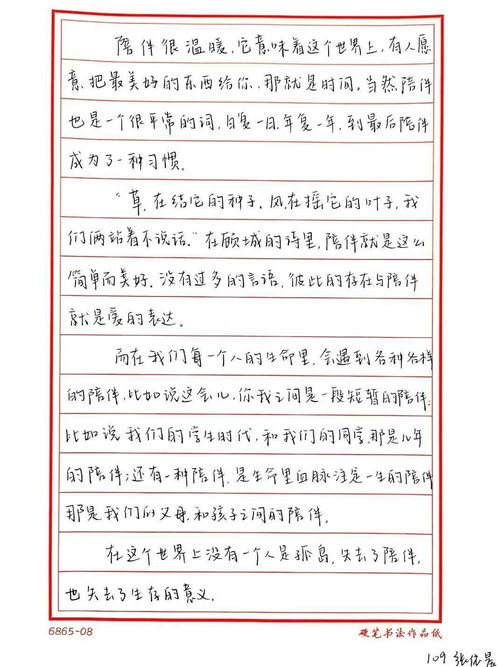 陪伴很温暖，它意味着这个世界上，有人愿
意把最美好的东西给你，那就是时间。当然陪伴
也是一个很平常的词，日复一日，年复一年，到最后陪伴
成为了一种习惯。
“草，在结它的种子。风在摇它的叶子，我
们俩站着不说话。”在顾城的诗里，陪伴就是这么
简单而美好。没有过多的言语，彼此的存在与陪伴
就是爱的表达。
而在我们每一个人的生命里，会遇到各种各样
的陪伴，比如说这会儿，你我之间是一段短暂的陪伴；
比如说我们的学生时代，和我们的同学，那是几年
的陪伴；还有一种陪伴，是生命里血脉注定一生的陪伴
那是我们的父母，和孩子之间的陪伴。
在这个世界上没有一个人是孤岛，失去了陪伴，
也失去了生存的意义。
6865-08 硬笔书法作品纸
109 张佑晨